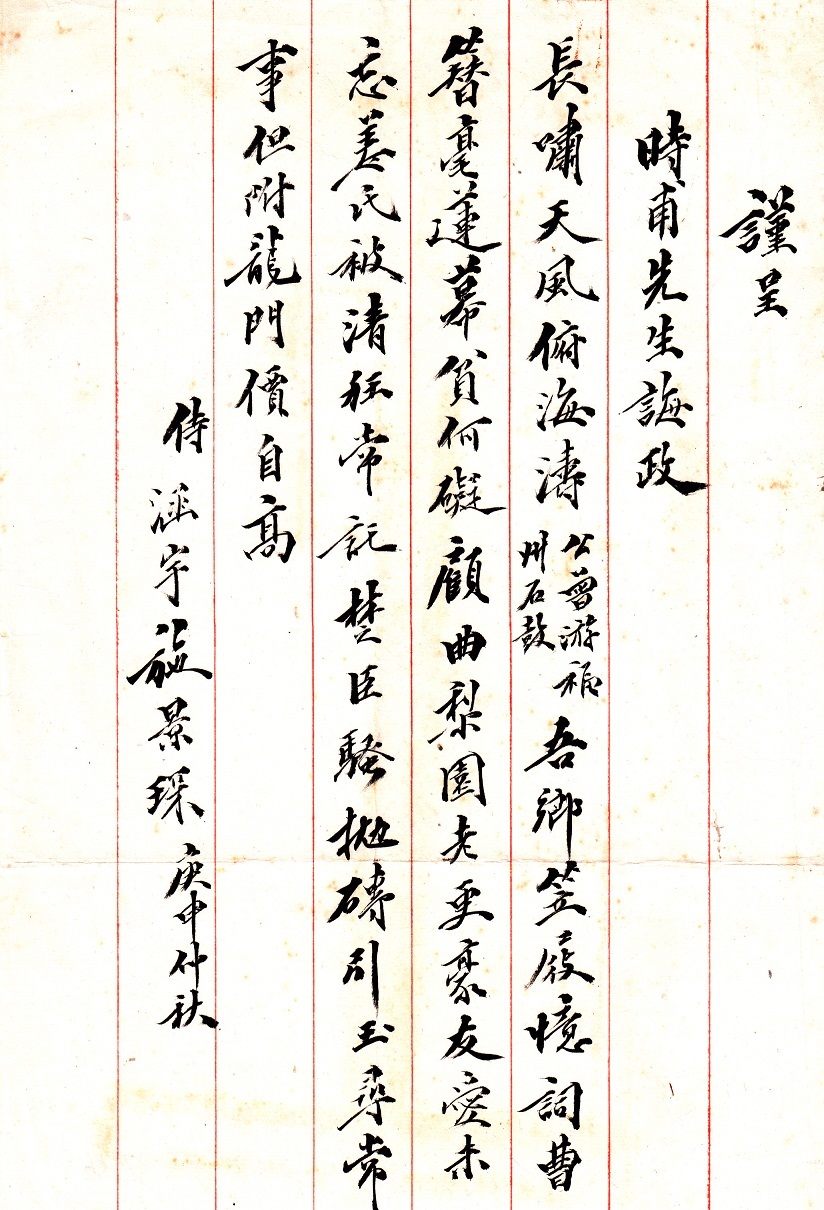 謹呈
時甫先生誨政
長嘯天風俯海濤公曾游福州石鼓吾鄉笠屐憶詞曹
簪毫蓮幕貧何礙顧曲梨園老更豪友愛未
忘姜氏被清狂常託楚臣騷拋磚引玉尋常
事但附龍門價自高
侍涵宇施景琛庚申仲秋